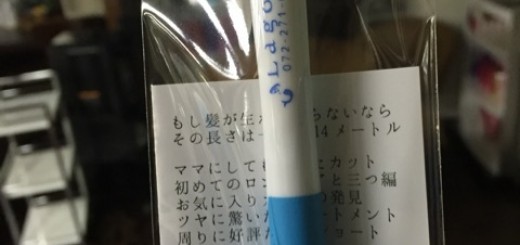 Lago
072-271-
もし髪が生 らないなら
その長さは 14メートル
ママにして にカット
初めてのロン と三つ編
お気に入り の発見
ツヤに驚い トメント
周りに好評 リート